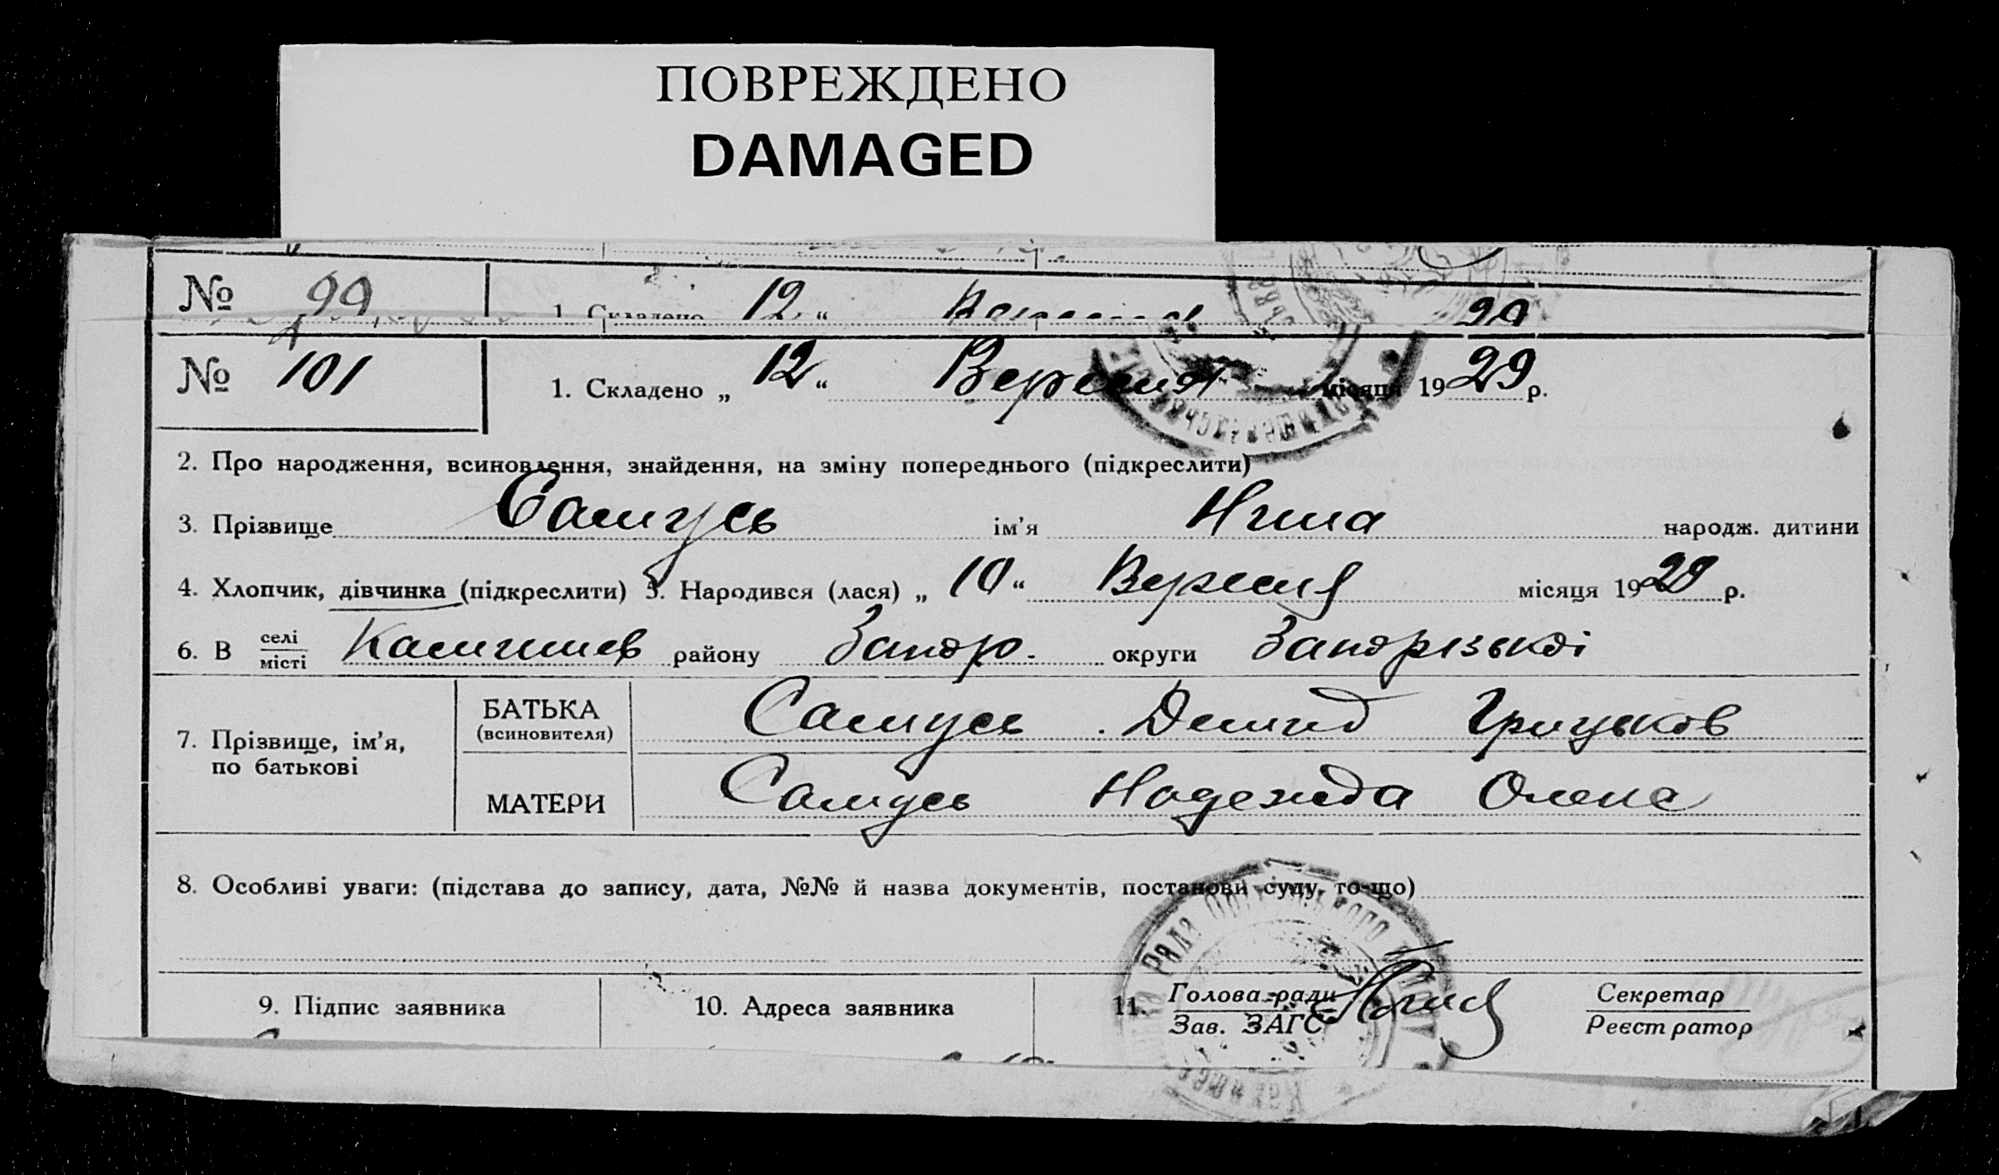 ПОВРЕЖДЕНО
DAMAGED
№ 99 1. Складено 12 “ 29
№ 101 1. Складено „ 12 “ Вересня місяця 1929 р.
2. Про народження, всиновлення, знайдення, на зміну попереднього (підкреслити)
3. Прізвище Самусь ім’я Нина народж. дитини
4. Хлопчик, дівчинка (підкреслити) 5. Народився (лася) „ 10 “ Вересня місяця 1929 р.
6. В селі/місті району Запор. округи Запорізькоі
7. Прізвище, ім’я, по батькові
БАТЬКА (всиновителя) Самусь Демид Грицьков
МАТЕРИ Самусь Надежда Олекс
8. Особливі уваги: (підстава до запису, дата, №№ й назва документів, постанови суду, то-що)
9. Підпис заявника 10. Адреса заявника 11. Голова ради Секретар
Зав. ЗАГС Реєстратор